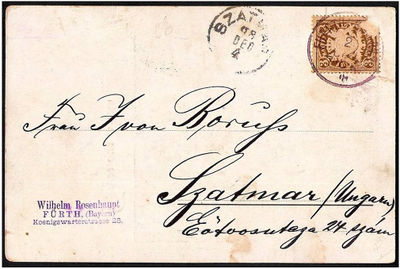 SZATMÁR
98
DEC
4
3
3
Frau J von Boruss
Szatmar (Ungarn)
Eötvosutaga 24 szám
Wilhelm Rosenhaupt
FÜRTH. (Bayern)
Koenigswarterstrasse 28.